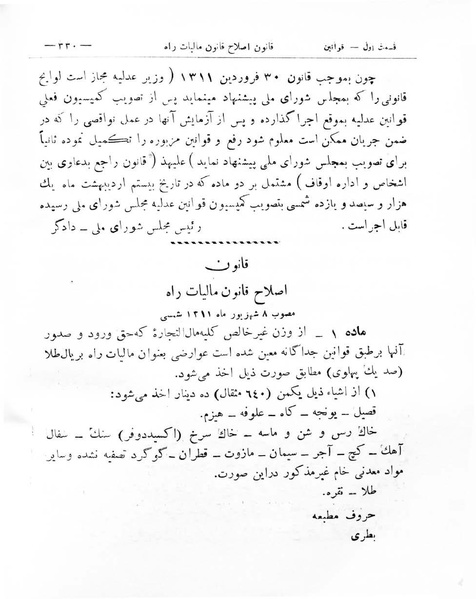 قسمت اول — قوانین قانون اصلاح قانون مالیات راه — ۳۳۰ —
چون بموجب قانون ۳۰ فروردین ۱۳۱۱ ( وزیر عدلیه مجاز است لوایح
قانونی را که بمجلس شورای ملی پیشنهاد مینماید پس از تصویب کمیسیون فعلی
قوانین عدلیه بموقع اجرا گذارده و پس از آزمایش آنها در عمل نواقصی را که در
ضمن جریان ممکن است معلوم شود رفع و قوانین مزبوره را تکمیل نموده ثانیاً
برای تصویب بمجلس شورای ملی پیشنهاد نماید ) علیهذا ( قانون راجع بدعاوی بین
اشخاص و اداره اوقاف ) مشتمل بر دو ماده که در تاریخ بیستم اردیبهشت ماه یك
هزار و سیصد و یازده شمسی بتصویب کمیسیون قوانین عدلیه مجلس شورای ملی رسیده
قابل اجراست . رئیس مجلس شورای ملی - دادگر
قانون
اصلاح قانون مالیات راه
مصوب ۸ شهریور ماه ۱۳۱۱ شمسی
ماده ۱ - از وزن غیرخالص کلیه مال‌التجارهٔ که حق ورود و صدور
آنها بر طبق قوانین جداگانه معین شده است عوارضی بعنوان مالیات راه بریال طلا
(صد یك پهلوی) مطابق صورت ذیل اخذ می‌شود.
۱) از اشیاء ذیل یکمن (۶۴۰ مثقال) ده دینار اخذ می‌شود:
قصیل - یونجه - کاه - علوفه - هیزم.
خاك رس و شن و ماسه - خاك سرخ (اکسیددوفر) سنك - سفال
آهك - کچ - آجر - سیمان - مازوت - قطران - گوگرد تصفیه نشده و سایر
مواد معدنی خام غیرمذکور در این صورت.
طلا - نقره.
حروف مطبعه
بطری